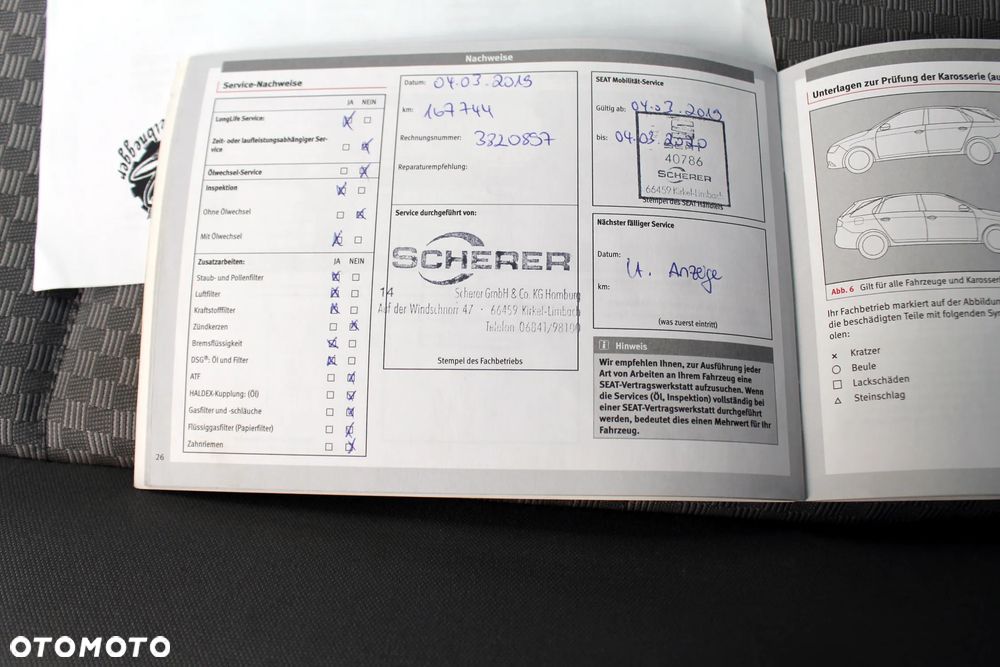 Nachweise
Service-Nachweise
JA NEIN
LongLife Service:
Zeit- oder laufleistungsabhängiger Ser-
vice
Ölwechsel-Service
Inspektion
Ohne Ölwechsel
Mit Ölwechsel
Zusatzarbeiten: JA NEIN
Staub- und Pollenfilter
Luftfilter
Kraftstofffilter
Zündkerzen
Bremsflüssigkeit
DSG®: Öl und Filter
ATF
HALDEX-Kupplung: (Öl)
Gasfilter und -schläuche
Flüssiggasfilter (Papierfilter)
Zahnriemen
26
Datum: 04.03.2019
km: 167744
Rechnungsnummer: 3320857
Reparaturempfehlung:
Service durchgeführt von:
SCHERER
14
Scherer GmbH & Co. KG Homburg
Auf der Windschnorr 47 · 66459 Kirkel-Limbach
Telefon 06841/98100
Stempel des Fachbetriebs
SEAT Mobilität-Service
Gültig ab: 04.03.2019
bis: 04.03.2020
SEAT
40786
SCHERER
66459 Kirkel-Limbach
Stempel des SEAT Händlers
Nächster fälliger Service
Datum: lt. Anzeige
km:
(was zuerst eintritt)
i Hinweis
Wir empfehlen Ihnen, zur Ausführung jeder
Art von Arbeiten an Ihrem Fahrzeug eine
SEAT-Vertragswerkstatt aufzusuchen. Wenn
die Services (Öl, Inspektion) vollständig bei
einer SEAT-Vertragswerkstatt durchgeführt
werden, bedeutet dies einen Mehrwert für Ihr
Fahrzeug.
Unterlagen zur Prüfung der Karosserie
Abb. 6 Gilt für alle Fahrzeuge und
Ihr Fachbetrieb markiert auf der
die beschädigten Teile mit folgenden
olen:
Kratzer
Beule
Lackschäden
Steinschlag
OTOMOTO